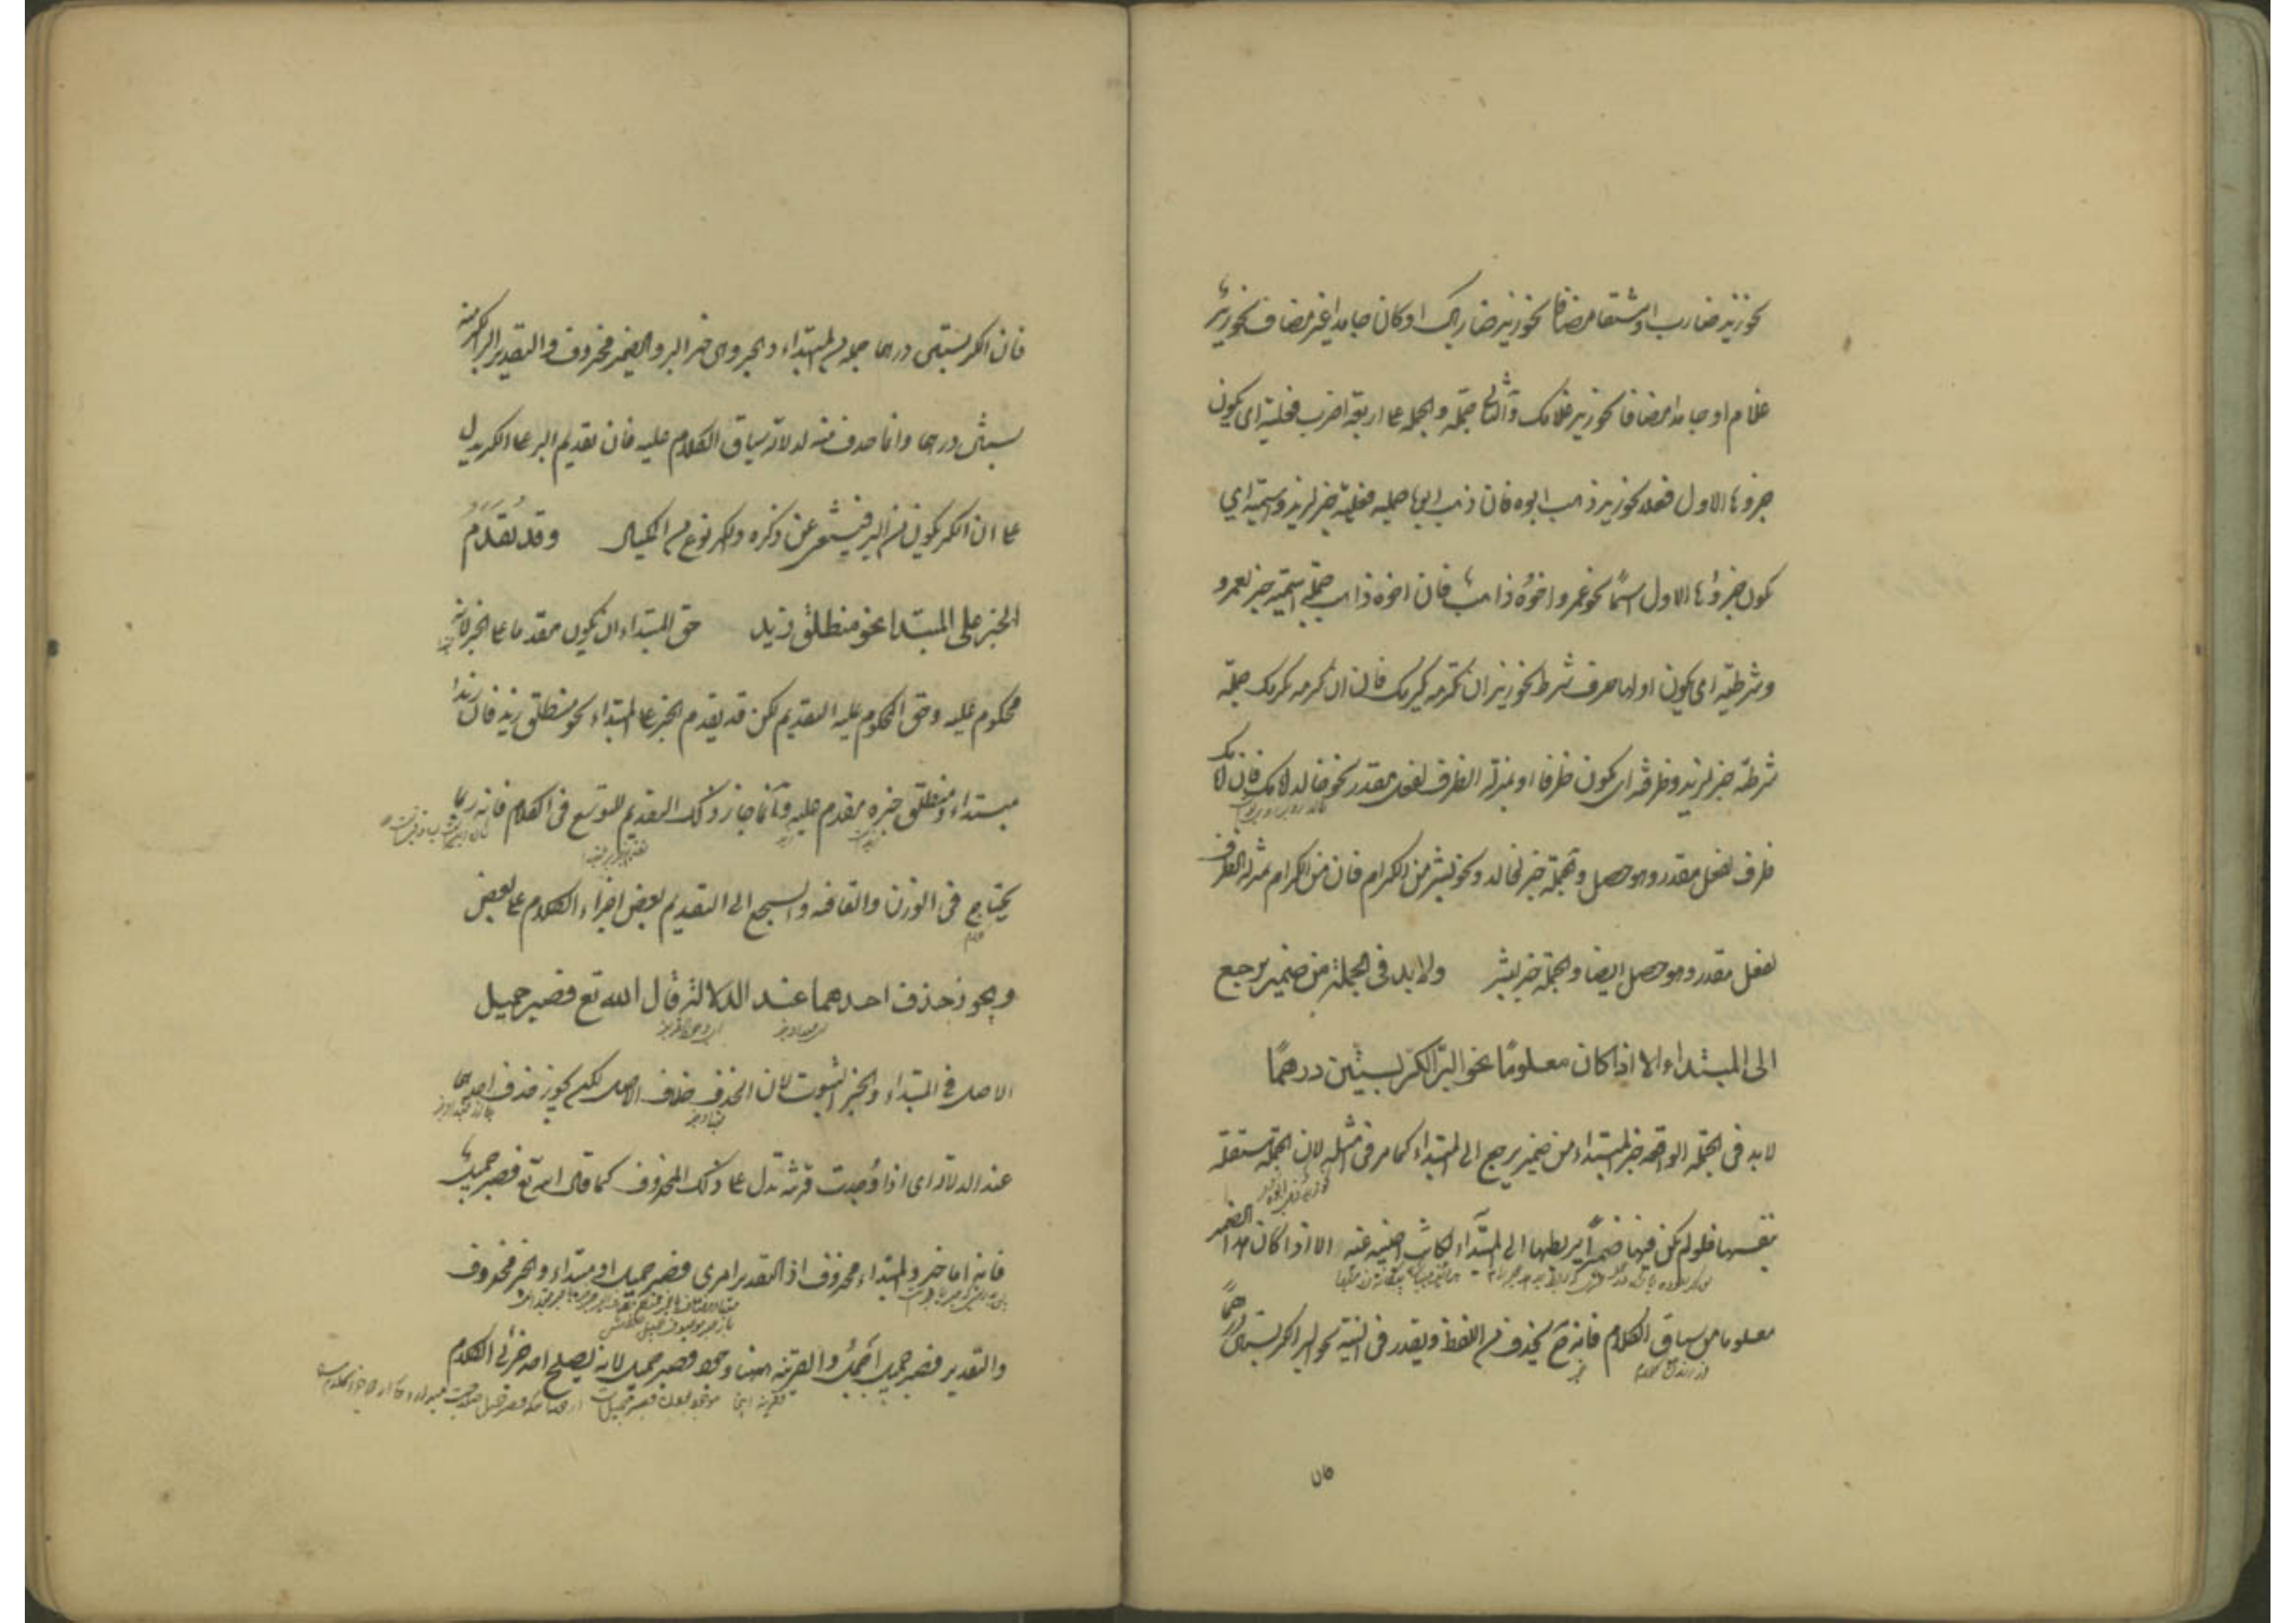 نحو زيد ضارب او مشتقا مضافا نحو زيد ضاربك او كان جامدا غير مضاف نحو زيد
غلام او جامدا مضافا نحو زيد غلامك والثانى جملة والجملة على اربعة اضرب فعلية اى يكون
جزوها الاول فعلا نحو زيد ذهب ابوه فان ذهب ابوها جملة فعلية خبر لزيد واسمية اى
يكون جزؤها الاول اسمًا نحو عمرو اخوه ذاهب فان اخوه ذاهب جملة اسمية خبر لعمرو
وشرطية اى يكون اولها حرف شرط نحو زيد ان تكرمه يكرمك فان ان تكرمه يكرمك جملة
شرطية خبر لزيد وظرفية اى يكون ظرفا او بمنزلة الظرف لفعل مقدر نحو خالد امامك فان امامك
ظرف لفعل مقدر وهو حصل والجملة خبر لخالد ونحو بشر من الكرام فان من الكرام بمنزلة الظرف
لفعل مقدر وهو حصل ايضا والجملة خبر لبشر ولا بد فى الجملة من ضمير يرجع
الى المبتداء الا اذا كان معلومًا نحو البر الكر بستين درهمًا
لا بد فى الجملة الواقعة خبر المبتداء من ضمير يرجع الى المبتداء كما مر فى امثلة لان الجملة مستقلة
بنفسها فلو لم يكن فيها ضميرًا يربطها الى المبتداء لكانت اجنبية عنه الا اذا كان هذا الضمير
معلوما من سياق الكلام فانه ح يحذف من اللفظ ويقدر فى النية نحو البر الكر بستين درهمًا
فان
فان الكر بستين درهما جملة من المبتداء والخبر وهى خبر البر والضمير محذوف والتقدير البر الكر منه
بستين درهما وانما حذف منه لدلالة سياق الكلام عليه فان تقديم البر على الكر يدل
على ان الكر يكون من البر فيستغنى عن ذكره والكر نوع من المكيال وقد تقدم
الخبر على المبتدا نحو منطلق زيد حق المبتداء ان يكون مقدما على الخبر لانه
محكوم عليه وحق المحكوم عليه التقديم لكن قد يقدم الخبر على المبتداء نحو منطلق زيد فان زيدا
مبتداء ومنطلق خبره مقدم عليه وانما جاز ذلك التقديم للتوسع فى الكلام فانه ربما
يحتاج فى الوزن والقافية والسجع الى التقديم بعض اجزاء الكلام على بعض
ويجوز حذف احدهما عند الدلالة قال الله تع فصبر جميل
الاصل فى المبتداء والخبر الثبوت لان الحذف خلاف الاصل لكن يجوز حذف احدهما
عند الدلالة اى اذا وُجدت قرينة تدل على ذلك المحذوف كما قال الله تع فصبر جميل
فانه اما خبر والمبتداء محذوف اذ التقدير امرى فصبر جميل او مبتداء والخبر محذوف
والتقدير فصبر جميل اجمل والقرينة هيهنا وجود فصبر جميل لانه يصلح احد جزئى الكلام